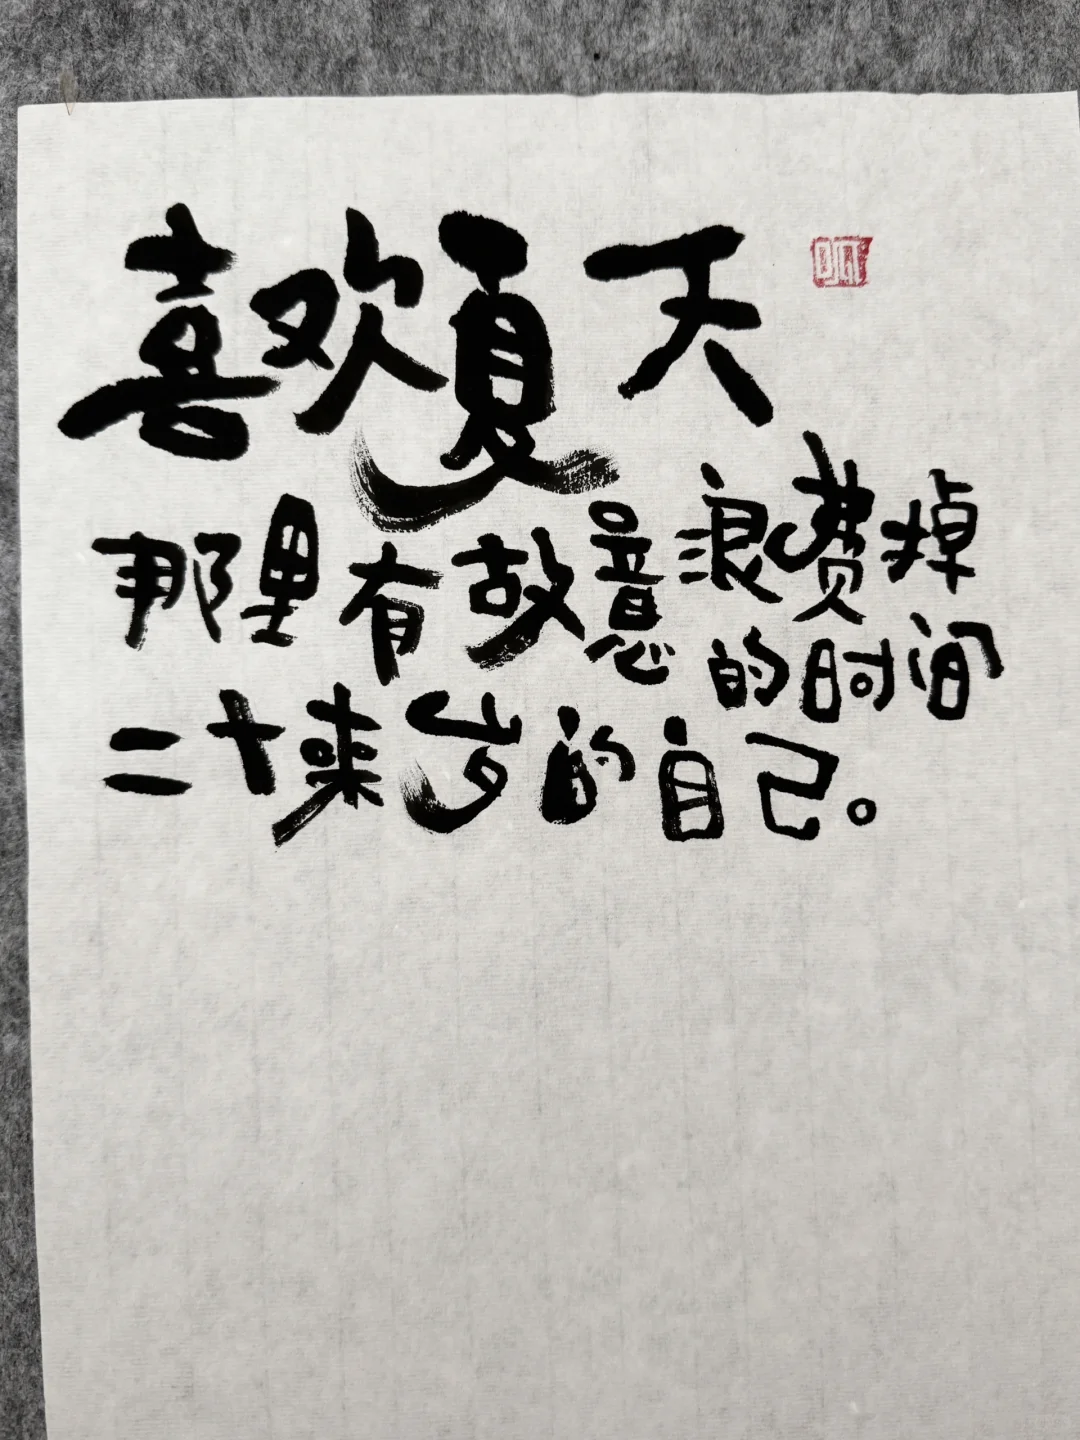 喜欢夏天
那里有故意浪费掉
的时间
二十来岁的自己。